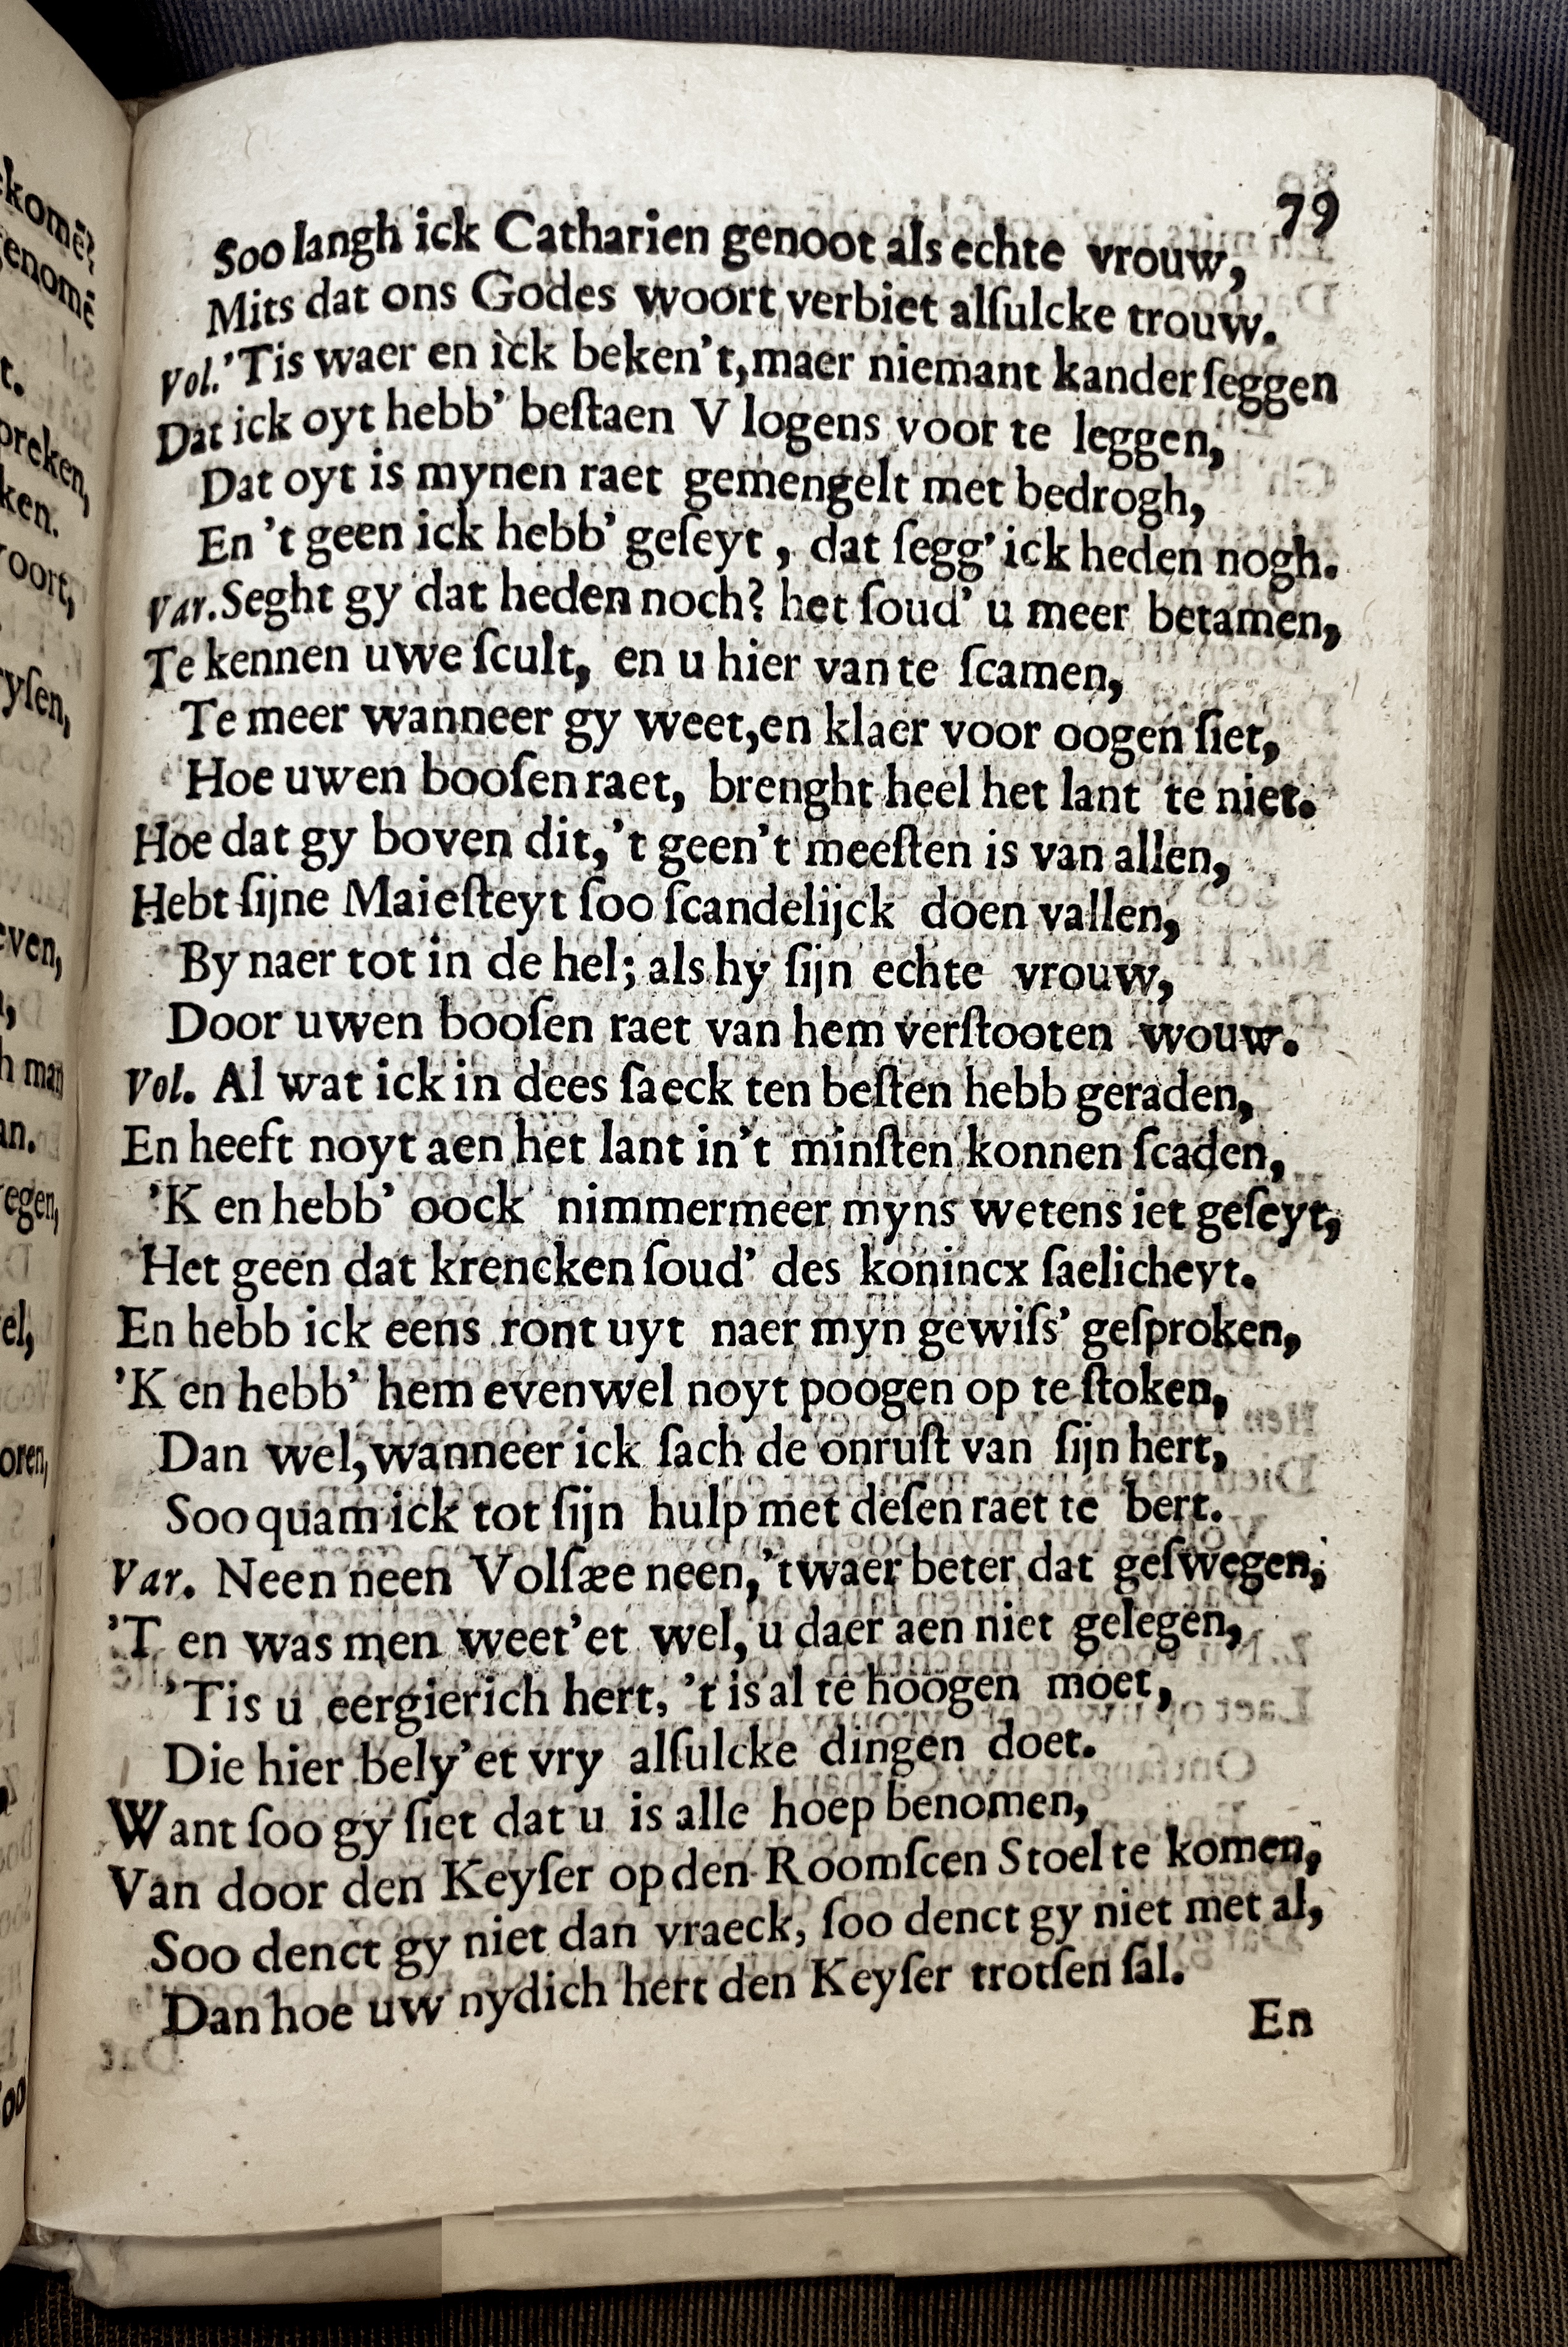 79
Soo langh ick Catharien genoot als echte vrouw,
Mits dat ons Godes woort verbiet alſulcke trouw.
Vol. 'Tis waer en ick beken't, maer niemant kander ſeggen
Dat ick oyt hebb' beſtaen V logens voor te leggen,
Dat oyt is mynen raet gemengelt met bedrogh,
En 't geen ick hebb' geſeyt, dat ſegg' ick heden nogh.
Var. Seght gy dat heden noch? het ſoud' u meer betamen,
Te kennen uwe ſcult, en u hier van te ſcamen,
Te meer wanneer gy weet, en klaer voor oogen ſiet,
Hoe uwen booſen raet, brenght heel het lant te niet.
Hoe dat gy boven dit, 't geen't meeſten is van allen,
Hebt ſijne Maieſteyt ſoo ſcandelijck doen vallen,
By naer tot in de hel; als hy ſijn echte vrouw,
Door uwen booſen raet van hem verſtooten wouw.
Vol. Al wat ick in dees ſaeck ten beſten hebb geraden,
En heeft noyt aen het lant in't minſten konnen ſcaden,
'K en hebb' oock nimmermeer myns wetens iet geſeyt,
Het geen dat krencken ſoud' des konincx ſaelicheyt.
En hebb ick eens ront uyt naer myn gewiſs' geſproken,
'K en hebb' hem evenwel noyt poogen op te ſtoken,
Dan wel, wanneer ick ſach de onruſt van ſijn hert,
Soo quam ick tot ſijn hulp met deſen raet te bert.
Var. Neen neen Volſæe neen, 't waer beter dat geſwegen,
'T en was men weet'et wel, u daer aen niet gelegen,
'Tis u eergierich hert, 't is al te hoogen moet,
Die hier bely'et vry alſulcke dingen doet.
Want ſoo gy ſiet dat u is alle hoep benomen,
Van door den Keyſer op den Roomſcen Stoel te komen,
Soo denct gy niet dan vraeck, ſoo denct gy niet met al,
Dan hoe uw nydich hert den Keyſer trotſen ſal.
En